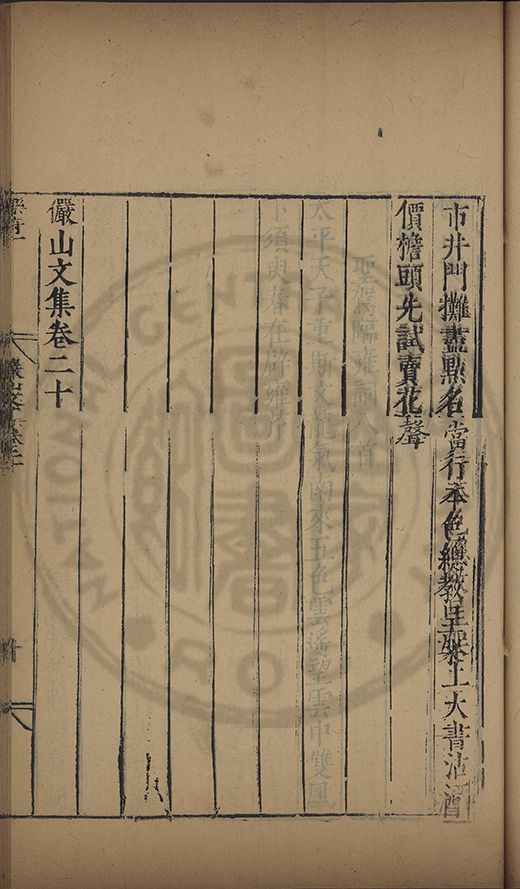 市井門攤盡點名當行本色總教呈架上大書沽酒
價檐頭先試賣花聲
聖駕臨雍詞八首
太平天子重斯文龍氣南來五色雲遙望雲中雙鳳
下須臾在辟雍
儼山文集卷二十